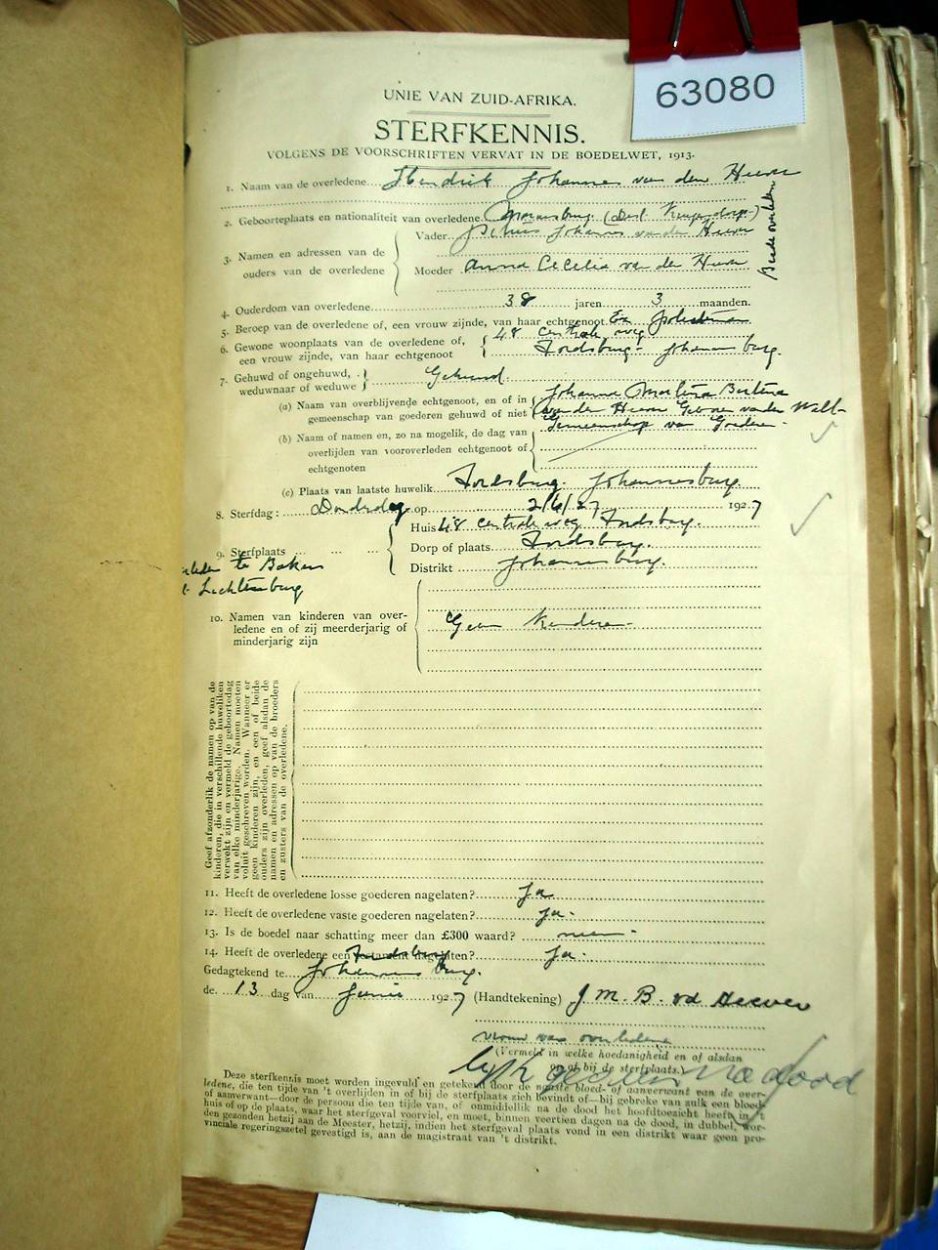 63080
UNIE VAN ZUID-AFRIKA.
STERFKENNIS.
VOLGENS DE VOORSCHRIFTEN VERVAT IN DE BOEDELWET, 1913.
1. Naam van de overledene Hendrik Johannes van den Heever
2. Geboorteplaats en nationaliteit van overledene (Dist. Krugersdorp)
3. Namen en adressen van de ouders van de overledene
Vader Johannes van der Heever
Moeder Anna Cecelia van der Heever
Beide overleden
4. Ouderdom van overledene 38 jaren 3 maanden.
5. Beroep van de overledene of, een vrouw zijnde, van haar echtgenoot
6. Gewone woonplaats van de overledene of, een vrouw zijnde, van haar echtgenoot
48 Centrale weg
Fordsburg - Johannesburg.
7. Gehuwd of ongehuwd, weduwnaar of weduwe Gehuwd.
(a) Naam van overblijvende echtgenoot, en of in gemeenschap van goederen gehuwd of niet
Johanna Martina Bertina
van der Heever Geboren van der Walt
Gemeenschap van Goederen
(b) Naam of namen en, zo na mogelik, de dag van overlijden van vooroverleden echtgenoot of echtgenoten
(c) Plaats van laatste huwelik Fordsburg. Johannesburg
8. Sterfdag: Donderdag op 2/6/27 1927
9. Sterfplaats
Huis 48 Centrale weg Fordsburg.
Dorp of plaats Fordsburg.
Distrikt Johannesburg.
te Bakers
Lichtenburg
10. Namen van kinderen van overledene en of zij meerderjarig of minderjarig zijn
Geen kinderen
Geef afzonderlik de namen op van de
kinderen, die in verschillende huweliken
verwekt zijn en vermeld de geboortedag
van elke minderjarige. Namen moeten
voluit geschreven worden. Wanneer er
geen kinderen zijn, en een of beide
ouders zijn overleden, geef alsdan de
namen en adressen op van de broeders
en zusters van de overledene.
11. Heeft de overledene losse goederen nagelaten? Ja
12. Heeft de overledene vaste goederen nagelaten? Ja.
13. Is de boedel naar schatting meer dan £300 waard? neen
14. Heeft de overledene een testament nagelaten? Ja.
Fordsburg
Gedagtekend te Johannesburg.
de 13 dag van Junie 1927 (Handtekening) J. M. B. vd Heever
vrouw van overledene
(Vermeld in welke hoedanigheid en of alsdan
op of bij de sterfplaats.)
na dood
Deze sterfkennis moet worden ingevuld en getekend door de naaste bloed- of aanverwant van de over-
ledene, die ten tijde van 't overlijden in of bij de sterfplaats zich bevindt of—bij gebreke van zulk een bloed-
of aanverwant—door de persoon die ten tijde van, of onmiddellik na de dood het hoofdtoezicht heeft in 't
huis of op de plaats, waar het sterfgeval voorviel, en moet, binnen veertien dagen na de dood, in dubbel, wor-
den gezonden hetzij aan de Meester, hetzij, indien het sterfgeval plaats vond in een distrikt waar geen pro-
vinciale regeringszetel gevestigd is, aan de magistraat van 't distrikt.